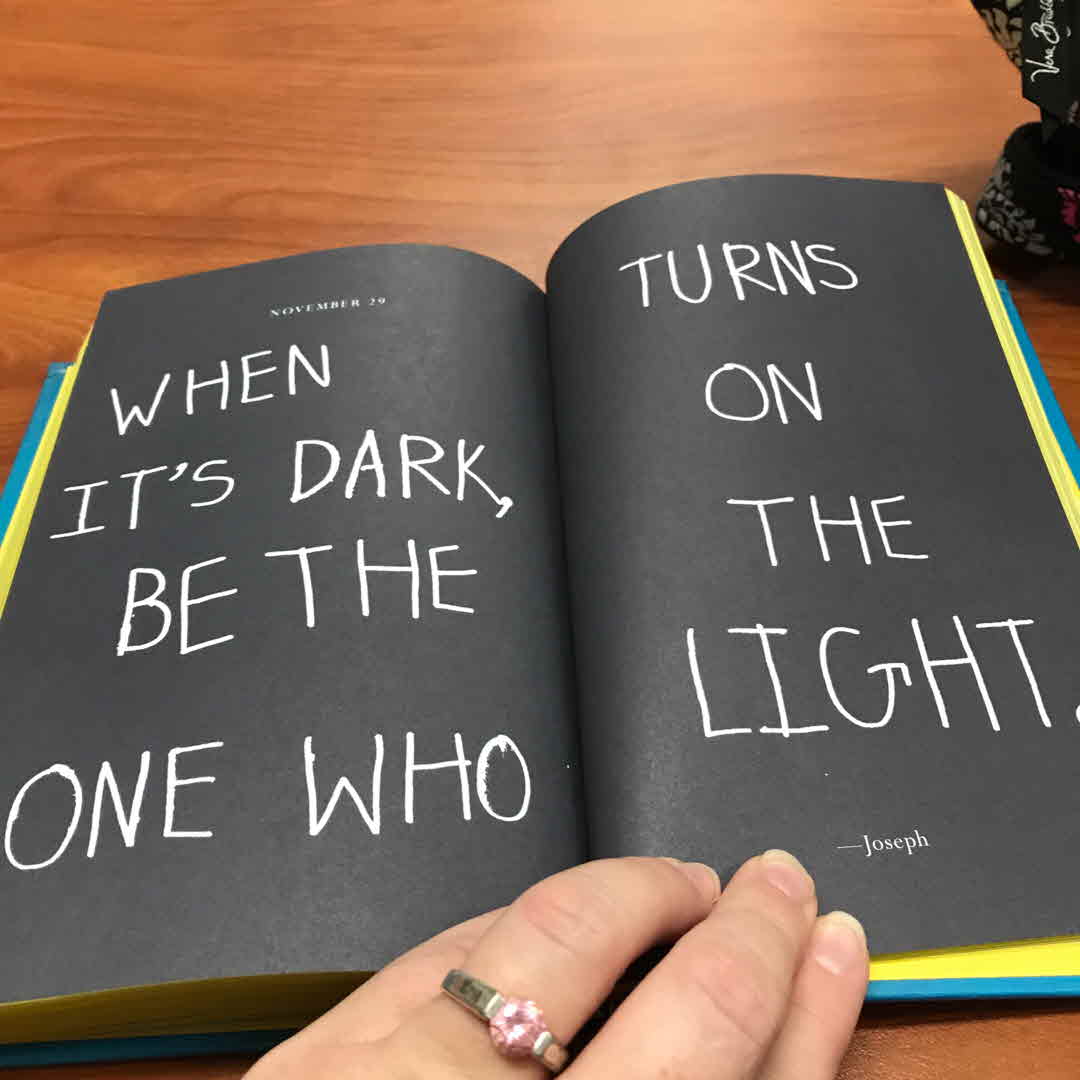 NOVEMBER 29
WHEN
IT'S DARK,
BE THE
ONE WHO
TURNS
ON
THE
LIGHT.
—Joseph
Vera Bradley